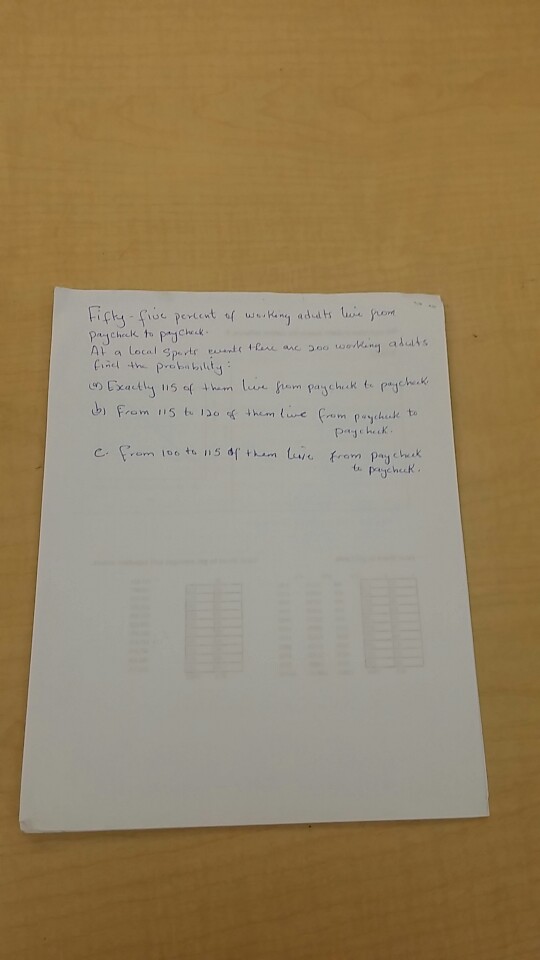 Fifty-five percent of working adults live from
paycheck to paycheck.
At a local sports events there are 200 working adults
find the probability:
(a) Exactly 115 of them live from paycheck to paycheck
b) From 115 to 120 of them live from paycheck to
paycheck.
c. from 100 to 115 of them live from paycheck
to paycheck.